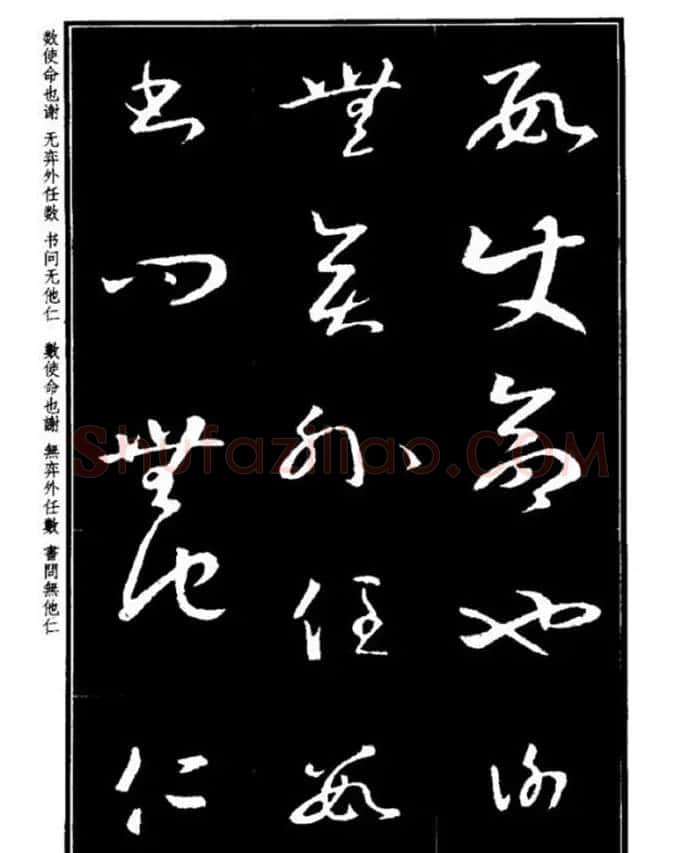 數使命也謝
無弈外任數
書問無他仁
数使命也谢 无弈外任数 书问无他仁
數使命也謝 無弈外任數 書問無他仁
Shufaziliao.COM